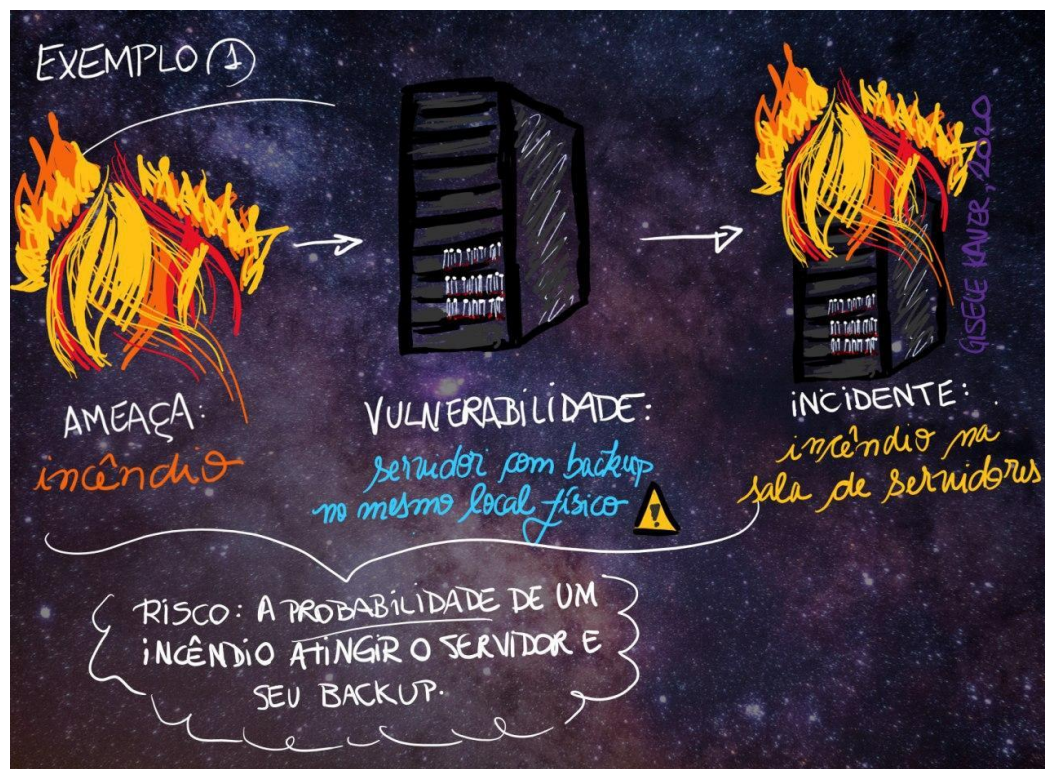 EXEMPLO 1
AMEAÇA:
incêndio
VULNERABILIDADE:
servidor com backup
no mesmo local físico
!
INCIDENTE:
incêndio na
sala de servidores
RISCO: A PROBABILIDADE DE UM
INCÊNDIO ATINGIR O SERVIDOR E
SEU BACKUP.
GISELE KAUER, 2020